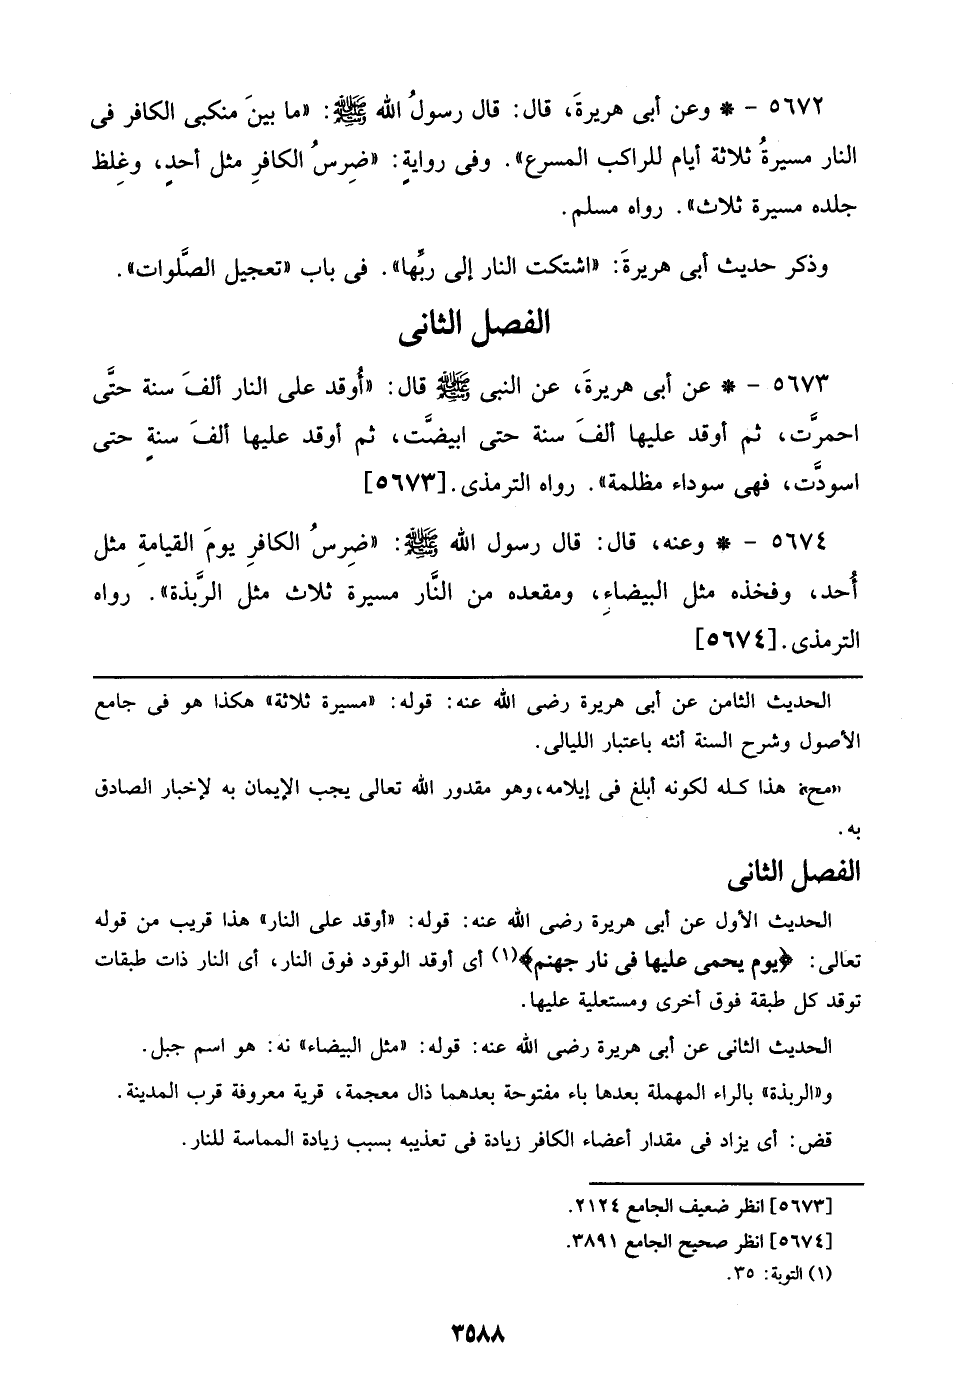 ٥٦٧٢ - * وعن أبى هريرةَ، قال: قال رسولُ الله ﷺ: «ما بينَ منكبى الكافر فى
النار مسيرةُ ثلاثة أيام للراكب المسرع». وفى روايةٍ: «ضِرسُ الكافرِ مثل أحدٍ، وغلِظ
جلده مسيرة ثلاث». رواه مسلم.
وذكر حديث أبى هريرةَ: «اشتكت النار إلى ربِّها». فى باب «تعجيل الصَّلوات».
الفصل الثانى
٥٦٧٣ - * عن أبى هريرةَ، عن النبى ﷺ قال: «أُوقد على النار ألفَ سنة حتَّى
احمرَّت، ثم أوقد عليها ألفَ سنة حتى ابيضَّت، ثم أوقد عليها ألفَ سنةٍ حتى
اسودَّت، فهى سوداء مظلمة». رواه الترمذى.[٥٦٧٣]
٥٦٧٤ - * وعنه، قال: قال رسول الله ﷺ: «ضِرسُ الكافرِ يومَ القيامةِ مثل
أُحد، وفخذه مثل البيضاءِ، ومقعده من النَّار مسيرة ثلاث مثل الرَّبذة». رواه
الترمذى.[٥٦٧٤]
الحديث الثامن عن أبى هريرة رضى الله عنه: قوله: «مسيرة ثلاثة» هكذا هو فى جامع
الأصول وشرح السنة أنثه باعتبار الليالى.
«مح» هذا كله لكونه أبلغ فى إيلامه،وهو مقدور الله تعالى يجب الإيمان به لإخبار الصادق
به.
الفصل الثانى
الحديث الأول عن أبى هريرة رضى الله عنه: قوله: «أوقد على النار» هذا قريب من قوله
تعالى: ﴿يوم يحمى عليها فى نار جهنم﴾(١) أى أوقد الوقود فوق النار، أى النار ذات طبقات
توقد كل طبقة فوق أخرى ومستعلية عليها.
الحديث الثانى عن أبى هريرة رضى الله عنه: قوله: «مثل البيضاء» نه: هو اسم جبل.
و«الربذة» بالراء المهملة بعدها باء مفتوحة بعدهما ذال معجمة، قرية معروفة قرب المدينة.
قض: أى يزاد فى مقدار أعضاء الكافر زيادة فى تعذيبه بسبب زيادة المماسة للنار.
[٥٦٧٣] انظر ضعيف الجامع ٢١٢٤.
[٥٦٧٤] انظر صحيح الجامع ٣٨٩١.
(١) التوبة: ٣٥.
٣٥٨٨